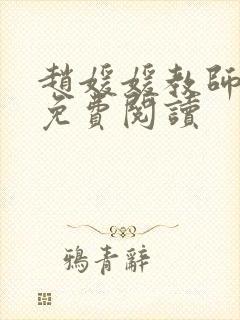 趙媛媛教師
免費閱讀
鴉青辭